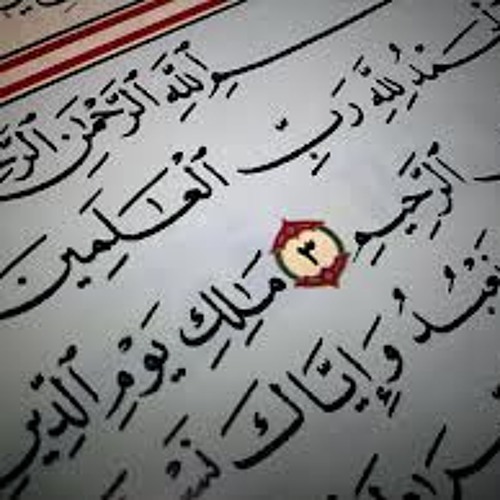 بِسْمِ ٱللَّهِ ٱلرَّحْمَٰنِ
ٱلْحَمْدُ لِلَّهِ رَبِّ ٱلْعَٰلَمِينَ
ٱلرَّحِيمِ ٣ مَٰلِكِ يَوْمِ ٱلدِّينِ
نَعْبُدُ وَإِيَّاكَ